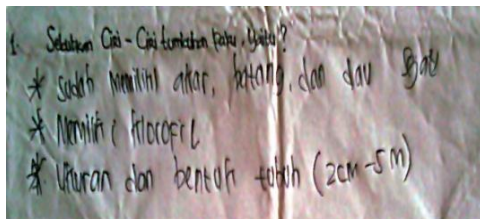 1. Sebutkan Ciri-Ciri tumbuhan paku, yaitu?
* Sudah Memiliki akar, batang, dan dau
* Memiliki klorofil
* Ukuran dan bentuk tubuh (2cm-5m)